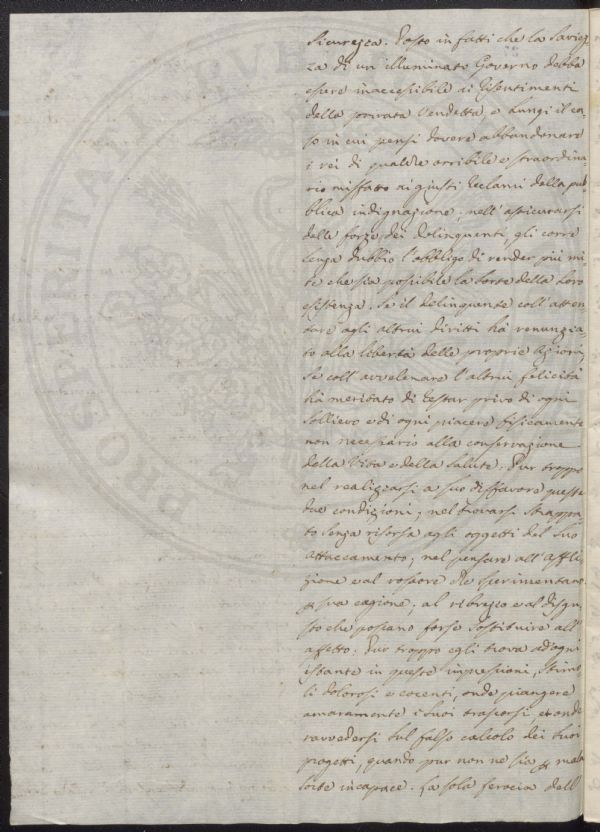 Sicurezza. Posto in fatti che la Saviez-
za di un illuminato Governo debba
essere inaccessibile ai Risentimenti
della privata Vendetta, e lungi il ca-
so in cui pensi dovere abbandonare
i rei di qualche orribile e straordina-
rio misfatto ai giusti Reclami della pub-
blica indignazione; nell'assicurarsi
delle forze dei Delinquenti gli corre
senza dubbio l'obbligo di render più mi-
te che sia possibile la sorte della loro
esistenza. Se il delinquente coll'atten-
tare agli altrui diritti ha renunzia-
to alla libertà delle proprie Azioni,
Se coll'avvelenare l'altrui felicità
ha meritato di restar privo di ogni
sollievo e di ogni piacere fisicamente
non necessario alla conservazione
della Vita e della Salute. Pur troppo
nel realizzarsi a suo disfavore queste
due condizioni; nel trovarsi strappa-
to senza risorsa agli oggetti del suo
attaccamento; nel pensare all'affli-
zione e al rossore che sperimentano
p sua cagione; al ribrezzo e al disgu-
sto che possano forse sostituire all'
affetto: Pur troppo egli trova ad ogni
istante in queste impressioni, stimo-
li dolorosi e cocenti, onde piangere
amaramente i suoi trascorsi, et onde
ravvedersi sul falso calcolo dei suoi
progetti, quando pur non ne sia p mala
sorte incapace. La sola ferocia dell'
PROSPERITA